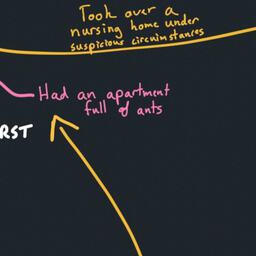 Took over a
nursing home under
suspicious circumstances
Had an apartment
full of ants
RST